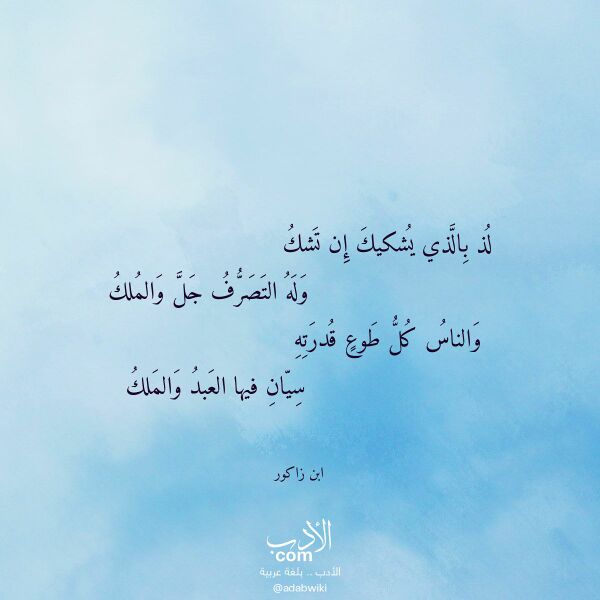 لُذ بِالَّذي يُشكيكَ إِن تَشكُ
وَلَهُ التَصَرُّفُ جَلَّ وَالمُلكُ
وَالناسُ كُلُّ طَوعٍ قُدرَتِهِ
سِيّانِ فيها العَبدُ وَالمَلكُ
ابن زاكور
الأدب
com
الأدب .. بلغة عربية
@adabwiki